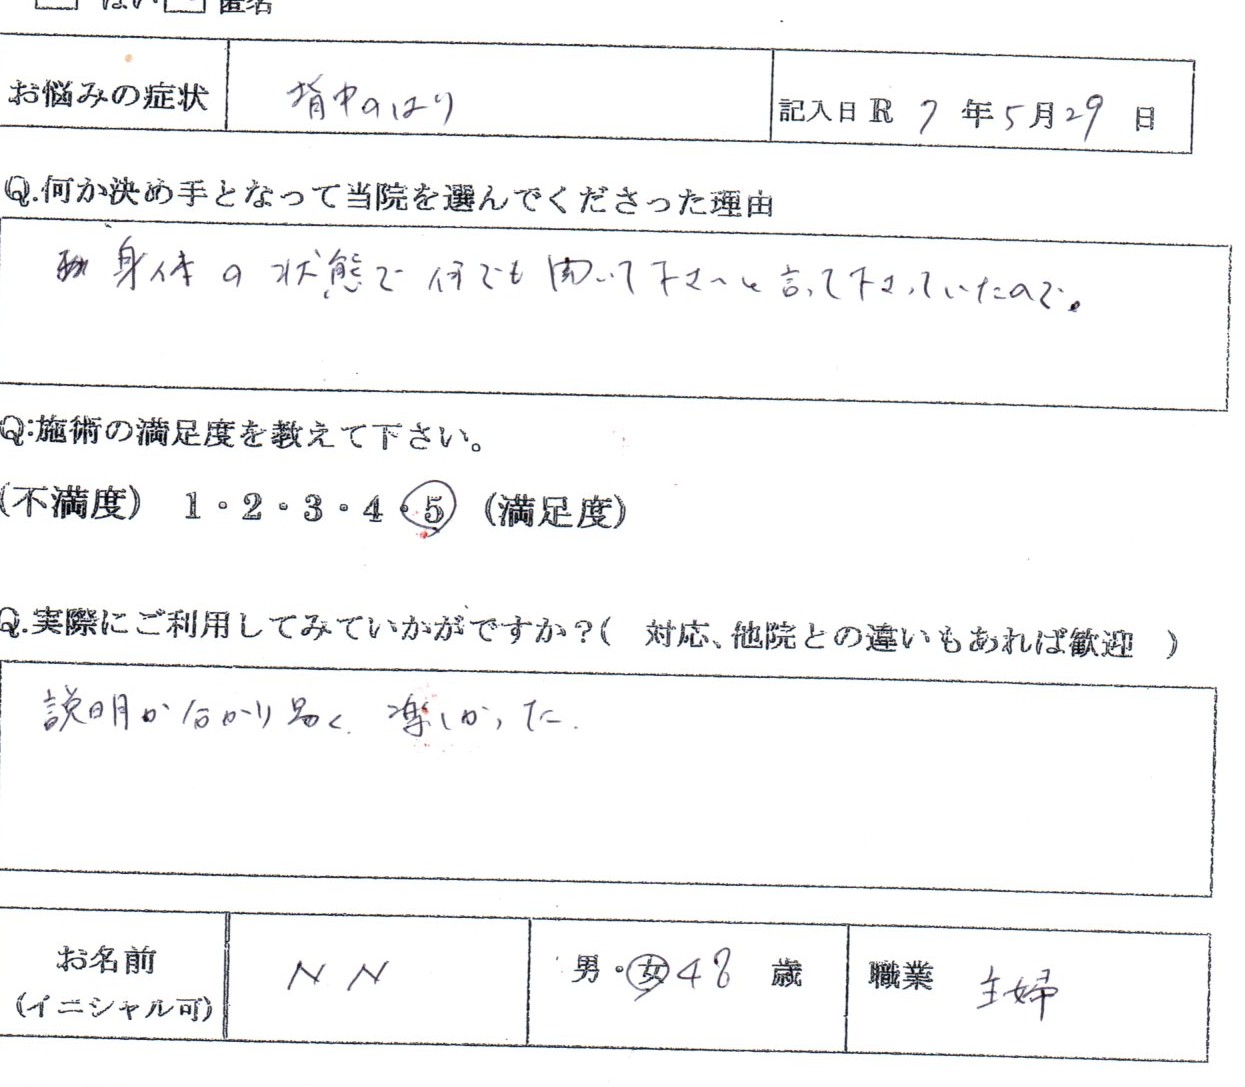 はい 匿名
お悩みの症状 背中のはり 記入日 R 7 年 5 月 29 日
Q.何か決め手となって当院を選んでくださった理由
身体の状態で何でも聞いて下さいと言って下さっていたので。
Q:施術の満足度を教えて下さい。
(不満度) 1・2・3・4・5 (満足度)
Q.実際にご利用してみていかがですか?( 対応、他院との違いもあれば歓迎 )
説明が分かり易く、楽しかった.
お名前 N N 男・女 48 歳 職業 主婦
(イニシャル可)